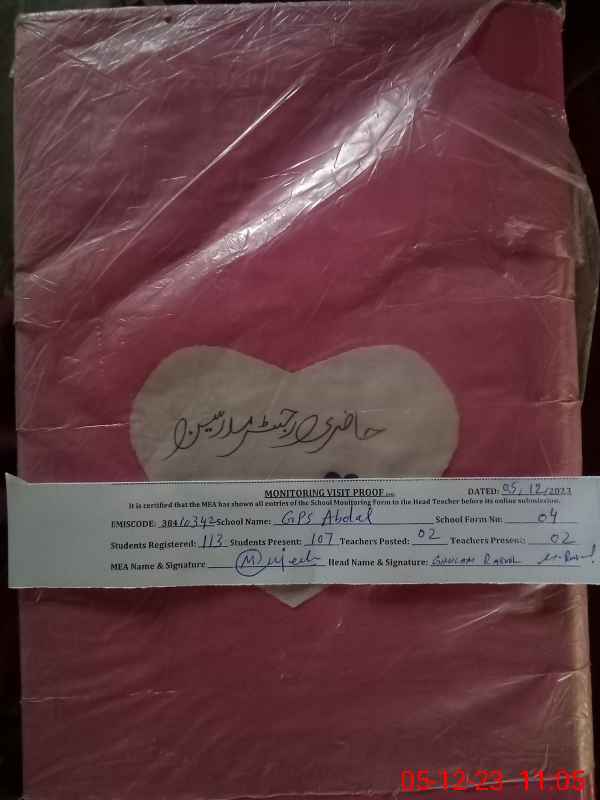 حاضری رجسٹر مدارسین
MONITORING VISIT PROOF DATED: 05, 12/2023
It is certified that the MEA has shown all entries of the School Monitoring Form to the Head Teacher before its online submission.
EMISCODE: 38410342 School Name: GPS Abdal School Form No: 04
Students Registered: 113 Students Present: 107 Teachers Posted: 02 Teachers Present: 02
MEA Name & Signature Mujeeb Head Name & Signature: GHULAM RASUL
05-12-23 11:05